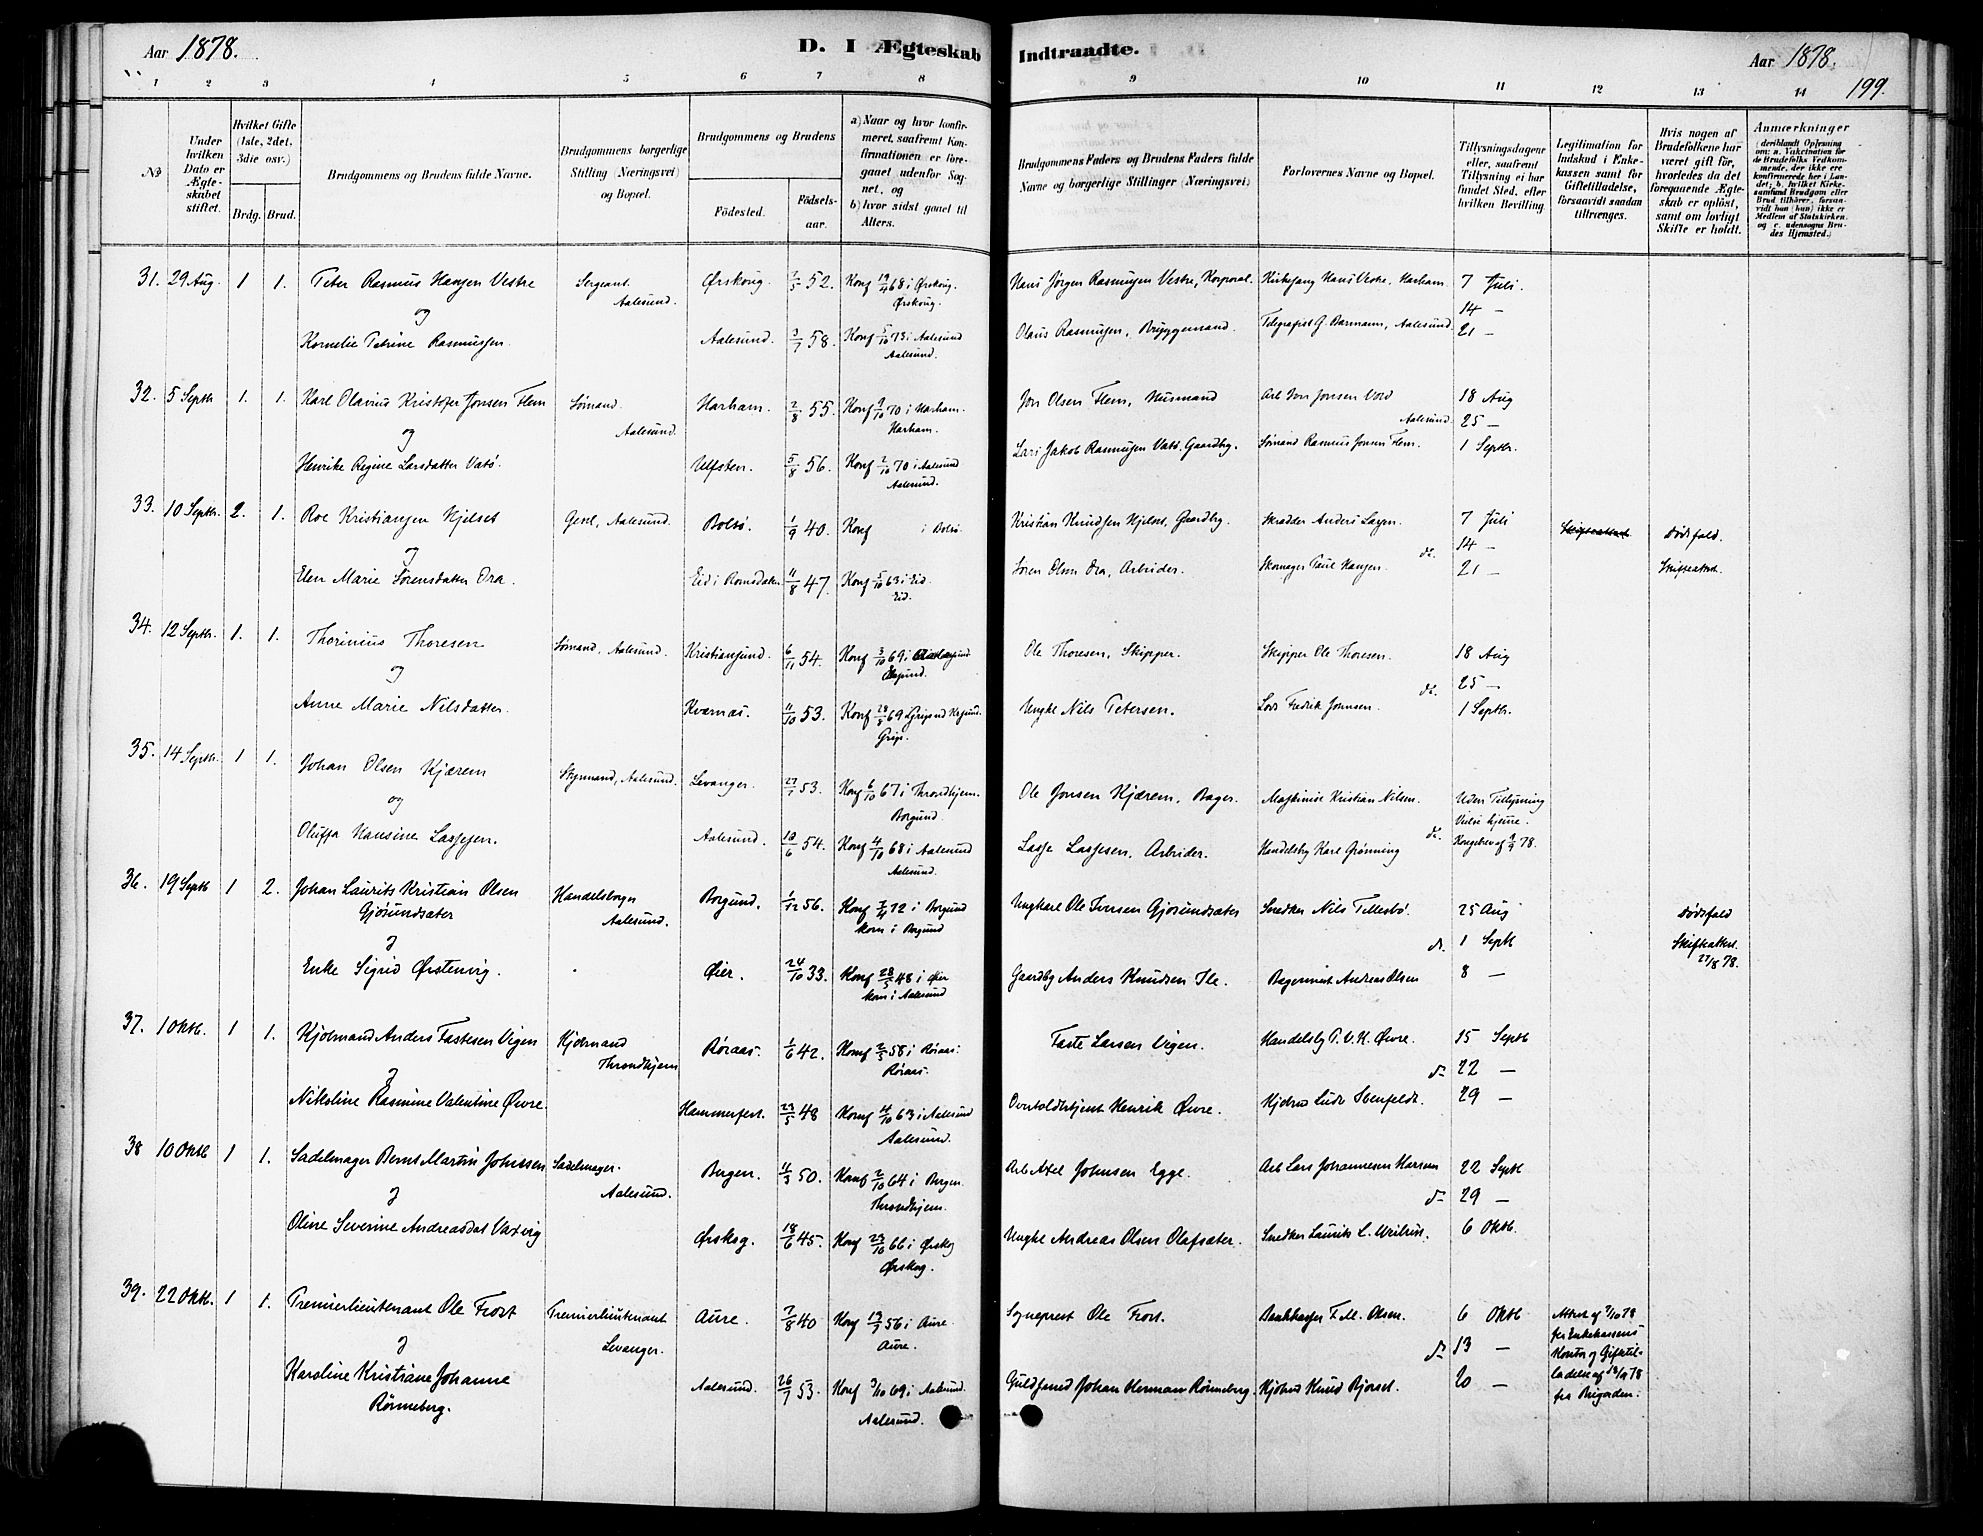 Aar 1878.
D. I Ægteskab Indtraadte.
Aar 1878.
199.
1 2 3 4 5 6 7 8 9 10 11 12 13 14
No
Under hvilken Dato er Ægteskabet stiftet.
Hvilket Gifte (1ste, 2det, 3die osv.)
Brdg. Brud.
Brudgommens og Brudens fulde Navne.
Brudgommens borgerlige Stilling (Næringsvei) og Bopæl.
Brudgommens og Brudens
Fødested.
Fødselsaar.
a) Naar og hvor konfirmeret, saafremt Konfirmationen er foregaaet udenfor Sognet, og
b) hvor sidst gaaet til Alters.
Brudgommens Faders og Brudens Faders fulde Navne og borgerlige Stillinger (Næringsvei)
Forlovernes Navne og Bopæl.
Tillysningsdagene eller, saafremt Tillysning ei har fundet Sted, efter hvilken Bevilling
Legitimation for Indskud i Enkekassen samt for Giftetilladelse, forsaavidt saadan tiltrænges.
Hvis nogen af Brudefolkene har været gift før, hvorledes da det foregaaende Ægteskab er opløst, samt om lovligt Skifte er holdt.
Anmærkninger
31. 29 Aug. 1 1. Peter Rasmus Hansen Vestre Sergeant. Aalesund. Ørskoug. 1/5 52. Konf 19/4 68 i Ørskoug. Ørskoug. Hans Jørgen Rasmussen Vestre, Korporal. Kirkesang Hans Vestre, Harham. 7 Juli.
og 14 —
Kornelie Petrine Rasmussen. Aalesund. 3/7 58. Konf 5/10 73 i Aalesund Aalesund. Olaus Rasmussen, Bryggemand. Telegrafist G. Barmann, Aalesund. 21 —
32. 5 Septb 1. 1. Karl Olavius Kristofer Jonsen Flem Sømand. Aalesund. Harham. 2/8 55. Konf 9/10 70 i Harham. Harham. Jon Olsen Flem, Husmand Arb Jon Jonsen Aalesund. 18 Aug
og 25 —
Henrike Regine Larsdatter Vatø. Ulfsten. 5/8 56. Konf 2/10 70 i Aalesund Aalesund. Lars Jakob Rasmussen Vatø. Gaardbg. Sømand Rasmus Jonsen Flem. 1 Septbr.
33. 10 Septbr. 2. 1. Roe Kristiansen Hjelset Gesel, Aalesund. Bolsø. 1/9 40. Konf i Bolsø. Kristian Knudsen Hjelset, Gaardbg. Skrædder Anders Larsen. 7 Juli Dødsfald.
og do. 14 —
Elen Marie Sørensdatter Ora. Eid i Romsdalen 11/8 47. Konf 5/10 63 i Eid. Eid. Søren Olsen Ora, Arbeider. Skomager Paul Hansen. 21 — Skifteattest.
34. 12 Septbr. 1. 1. Thorinius Thoresen Sømand, Aalesund. Kristiansund. 6/11 54. Konf 3/10 69 i Ole Thoresen, Skipper. Skipper Ole Thoresen. 18 Aug
og do. 25 —
Anne Marie Nilsdatter. Kværnæs. 11/10 53. Konf 28/8 69 Grip. Ungke Nils Petersen. Lods Fredrik Johnsen. 1 Septbr.
35. 14 Septbr. 1 1. Johan Olsen Kjærem Styrmand, Aalesund. Levanger. 27/1 53. Konf 6/10 67 i Throndhjem. Borgund. Ole Jonsen Kjærem, Bager. Maskinist Kristian Nilsen. Uden Tillysning
og Vielse hjemme.
Oluffa Hansine Lassesen. Aalesund. 10/6 54. Konf 4/10 68 i Aalesund Aalesund. Lasse Lassesen, Arbeider. Handelsbg Karl Grønning do. Kongebrev af 9/9 78.
36. 19 Septb 1 2. Johan Laurits Kristian Olsen Gjøsundsæter Handelsborger Aalesund. Borgund. 1/12 56. Konf 7/4 72 i Borgund kom i Borgund Ungkarl Ole Gjøsundsæter Snedker Nils Tillesbø. 25 Aug Dødsfald
og do. 1 Septb Skifteattest. 27/8 78.
Enke Sigrid Ørstenvig. Øier. 24/10 33. Konf 28/5 48 i Øier kom i Aalesund Gaardbg Anders Knudsen Ile. Bagermest Andreas Olsen 8 —
37. 1 Oktb. 1 1. Kjøbmand Anders Fastesen Vigen Kjøbmand Throndhjem Røraas. 1/6 42. Konf 2/5 58 i Røraas: Røraas. Faste Larsen Vigen. Handelsbg P. V. K. Øvre. 15 Septb
og do 22 —
Nikoline Rasmine Valentine Øvre. Hammerfest. 23/5 48 Konf 4/10 63 i Aalesund Aalesund. Overtoldbetjent Henrik Øvre. Kjøbmd Ludv Ibenfeldt. 29 —
38 10 Oktb 1 1. Sadelmager Bernt Martin Johnsen Sadelmager. Aalesund. Bergen. 4/3 50. Konf 2/10 64 i Bergen. Throndhjem. Arb Axel Johnsen Egge. Arb Lars Johannesen Harsem 22 Septb
og do 29 —
Oline Severine Andreasdat Vadvig Ørskog. 18/6 45. Konf 23/10 66 i Ørskog Ørskog. Ungke Andreas Olsen Olafsæter. Snedker Laurits L. 6 Oktb.
39. 22 Oktb. 1 1. Premierlieutenant Ole Frost Premierlieutenant Levanger. Aure. 2/8 40 Konf 13/7 56 i Aure. Aure. Sogneprest Ole Frost. Bankkasser F. M. Olsen. 6 Oktb Attest af 7/10 78 fra Enkekassens Kontor og Giftetilladelse af 18/9 78 fra Brigaden.
og do 13 —
Karoline Kristiane Johanne Rønneberg. Aalesund. 26/7 53. Konf 3/10 69 i Aalesund. Aalesund. Guldsmed Johan Herman Rønneberg. Kjøbmd Knud Bjorset. 20 —